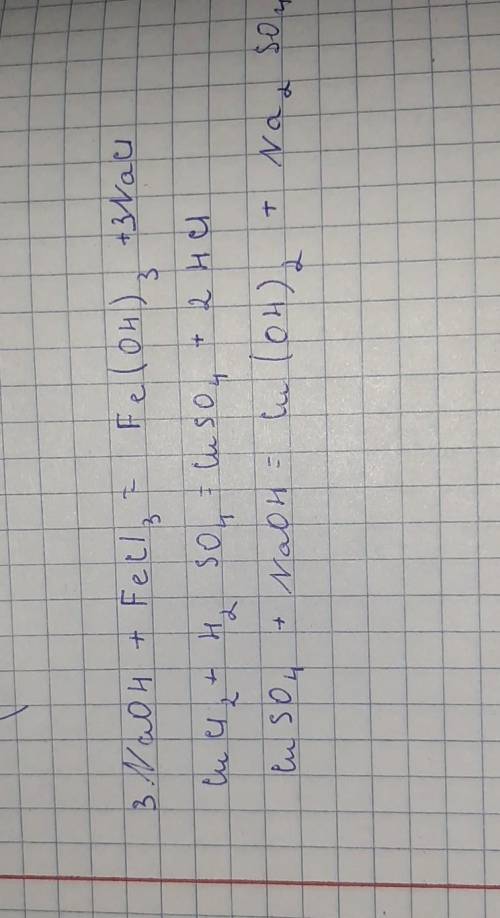 3NaOH + FeCl₃ = Fe(OH)₃ + 3NaCl
CuCl₂ + H₂SO₄ = CuSO₄ + 2HCl
CuSO₄ + NaOH = Cu(OH)₂ + Na₂SO₄